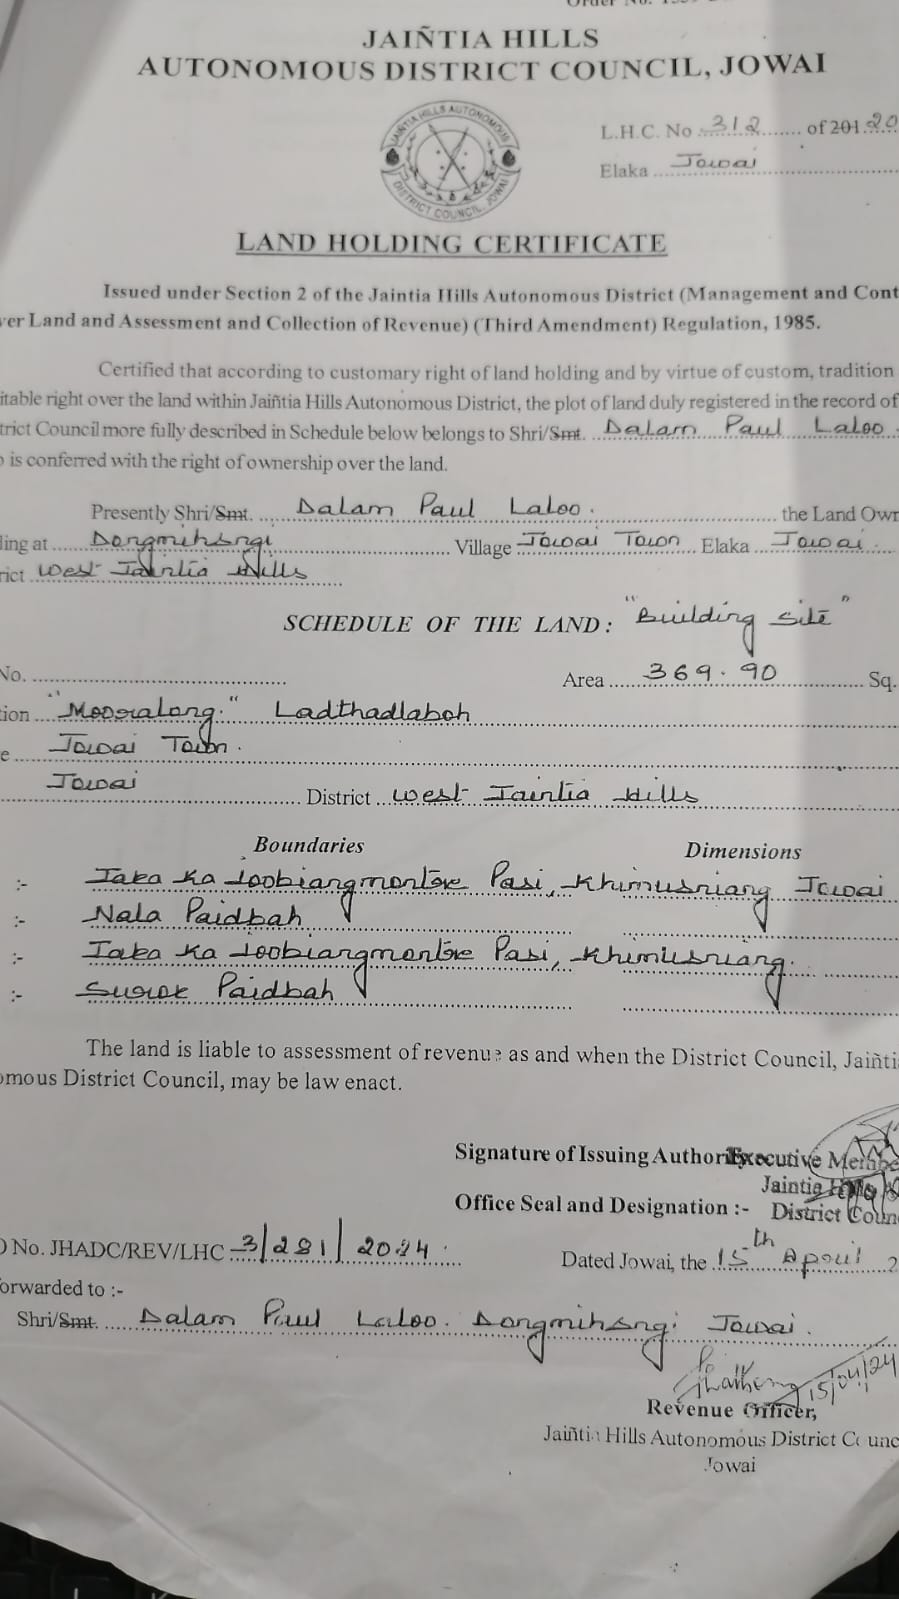 JAIÑTIA HILLS
AUTONOMOUS DISTRICT COUNCIL, JOWAI
JAIÑTIA HILLS AUTONOMOUS
DISTRICT COUNCIL, JOWAI
L.H.C. No 312 of 201.20
Elaka Jowai
LAND HOLDING CERTIFICATE
Issued under Section 2 of the Jaintia Hills Autonomous District (Management and Cont
ver Land and Assessment and Collection of Revenue) (Third Amendment) Regulation, 1985.
Certified that according to customary right of land holding and by virtue of custom, tradition
itable right over the land within Jaiñtia Hills Autonomous District, the plot of land duly registered in the record of
trict Council more fully described in Schedule below belongs to Shri/Smt. Dalam Paul Laloo
o is conferred with the right of ownership over the land.
Presently Shri/Smt. Dalam Paul Laloo. the Land Own
ling at Dongmihsngi Village Jowai Town Elaka Jowai.
rict West Jaintia Hills
SCHEDULE OF THE LAND: "Building Site"
No.
Area 369.90 Sq.
tion "Mooralong." Ladthadlaboh
e Jowai Town.
Jowai District West Jaintia Hills
Boundaries Dimensions
:- Jaka Ka Pasi, Khimusniang Jowai
:- Nala Paidbah
:- Jaka Ka Pasi, Khimusniang.
:- Surok Paidbah
The land is liable to assessment of revenue as and when the District Council, Jaiñti
omous District Council, may be law enact.
Signature of Issuing Authority Executive Membe
Jaintia Hills A
Office Seal and Designation :- District Coun
O No. JHADC/REV/LHC 3/281/2024. Dated Jowai, the 15th April 2
orwarded to :-
Shri/Smt. Dalam Paul Laloo. Dongmihsngi Jowai.
15/04/24
Revenue Officer,
Jaiñtia Hills Autonomous District Counc
Jowai